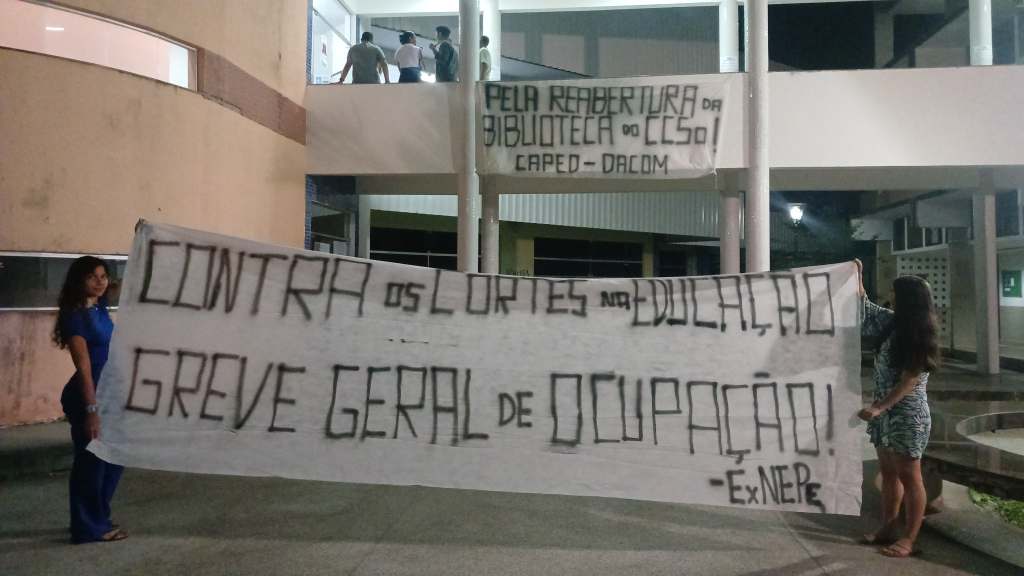 PELA REABERTURA DA
BIBLIOTECA DO CCSo!
CAPED-DACOM
CONTRA OS CORTES NA EDUCAÇÃO
GREVE GERAL DE OCUPAÇÃO!
-ExNEPe